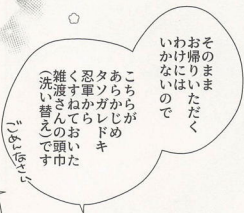 そのまま
お帰りいただく
わけには
いかないので
こちらが
あらかじめ
タソガレドキ
忍軍から
くすねておいた
雑渡さんの頭巾
(洗い替え)です
ごめんなさい